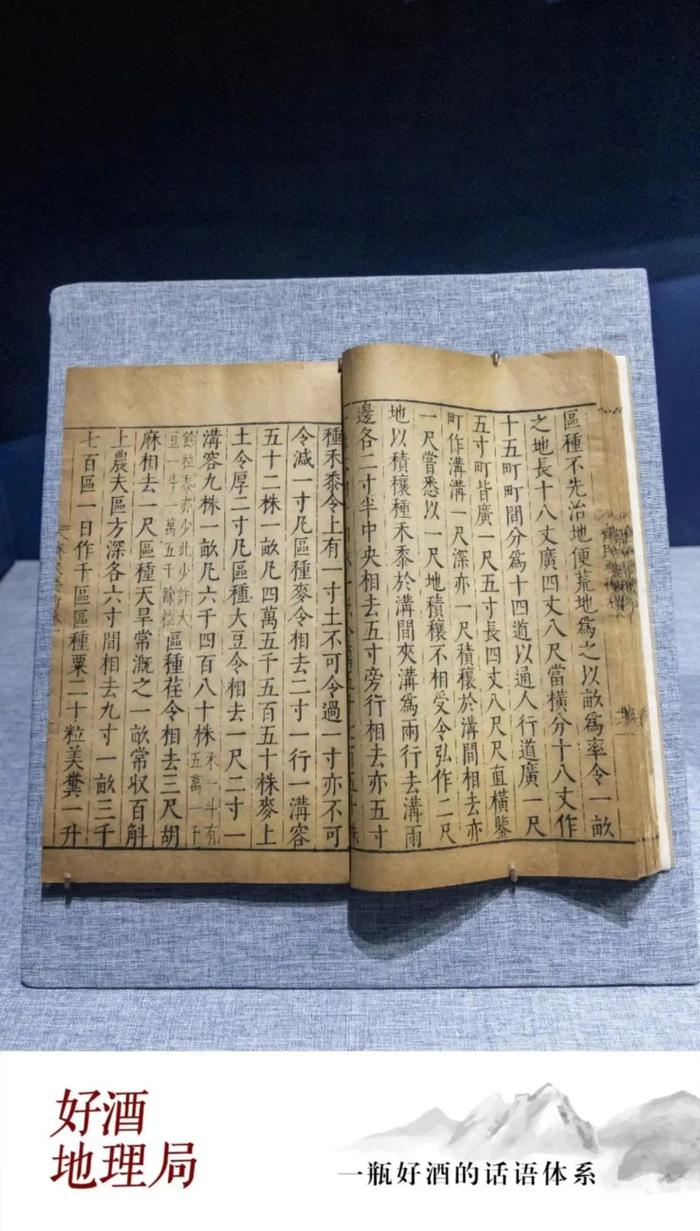 區種不先治地便荒地爲之以畝爲率令一畝
之地長十八丈廣四丈八尺當橫分十八丈作
十五町町間分爲十四道以通人行道廣一尺
五寸町皆廣一尺五寸長四丈八尺尺直橫鑿
町作溝溝一尺深亦一尺積穰於溝間相去亦
一尺嘗悉以一尺地積穰不相受令弘作二尺
地以積穰種禾黍於溝間夾溝爲兩行去溝兩
邊各二寸半中央相去五寸旁行相去亦五寸
七百五十株
種禾黍令上有一寸土不可令過一寸亦不可
令減一寸凡區種麥令相去二寸一行一溝容
五十二株一畝凡四萬五千五百五十株麥上
土令厚二寸凡區種大豆令相去一尺二寸一
溝容九株一畝凡六千四百八十株禾一斗有五萬一千
餘粒黍亦少此少許大豆一斗一萬五千餘粒區種荏令相去三尺胡
麻相去一尺區種天旱常溉之一畝常収百斛
上農夫區方深各六寸間相去九寸一畝三千
七百區一日作千區區種粟二十粒美糞一升
好酒
地理局
一瓶好酒的话语体系